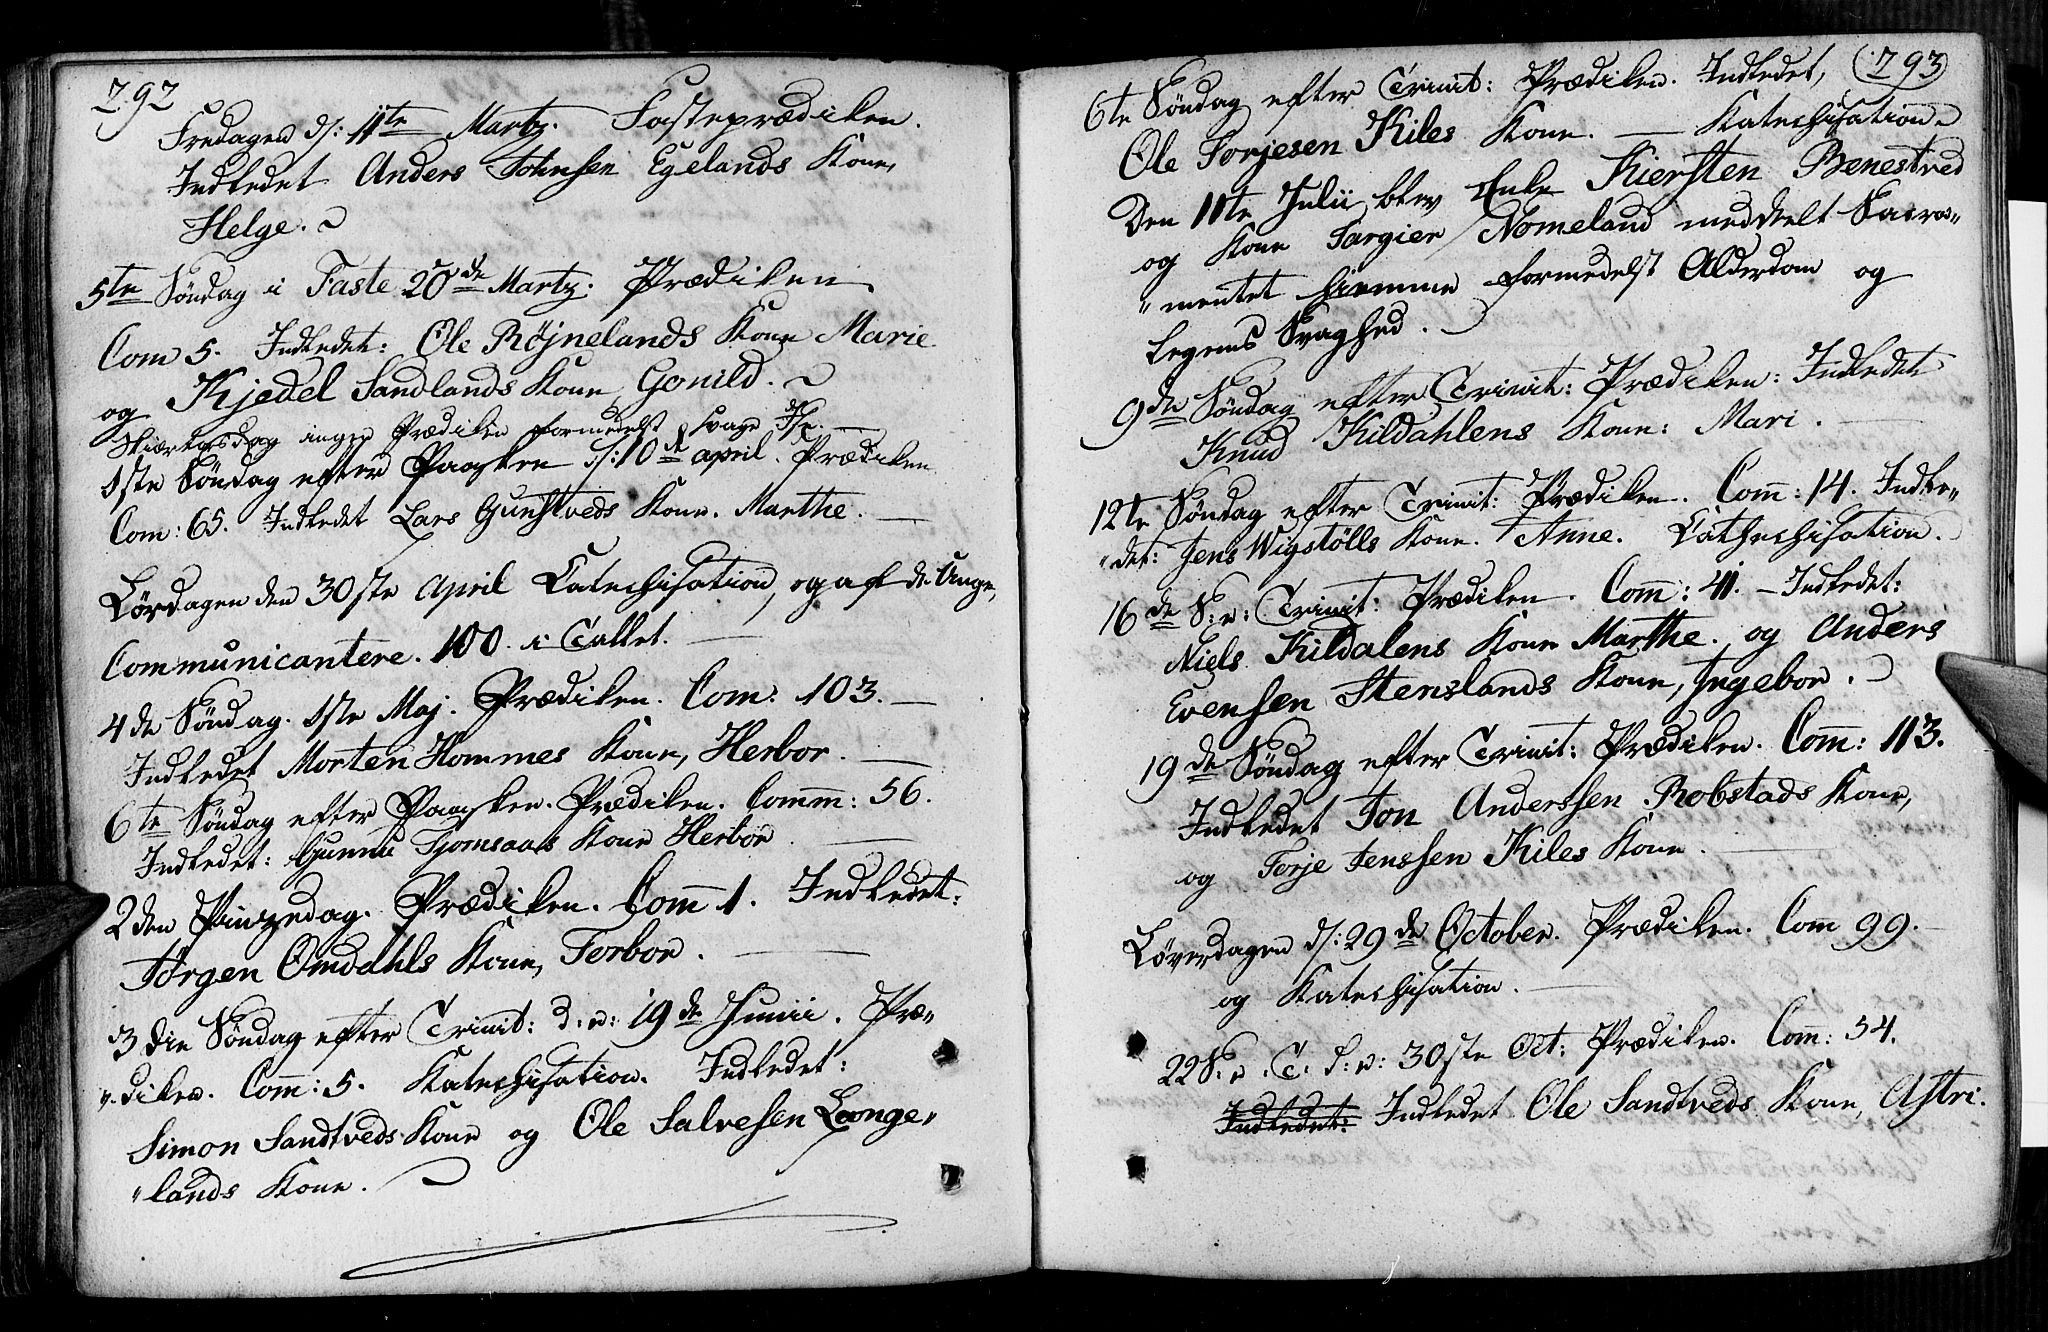 292
Fredagen d: 11te Martz. Fasteprædiken.
Indledet Anders Tohnsen Egelands Kone,
Helge.
5te Søndag i Faste 20de Martz: Prædiken.
Com 5. Indledet: Ole Røjnelands Kone Marie
og Kjedel Sandlands Kone, Gonild.
Skiertorsdag ingen Prædiken formedelst svage Iis.
1ste Søndag efter Paasken d: 10de april. Prædiken
Com: 65. Indledet Lars Gunstveds Kone. Marthe.
Lørdagen den 30ste April Catechisation, og af de Unge,
Communicantere. 100 i Tallet.
4de Søndag. 1ste Maj. Prædiken. Com: 103.
Indledet Morten Hommes Kone, Herbor.
6te Søndag efter Paasken. Prædiken. Comm: 56.
Indledet: Gunnu Tjomsaas Kone Herbor.
2den Pinzedag. Prædiken. Com 1. Indledet:
Tørgen Omdahls Kone, Torbor.
3die Søndag efter Trinit: d. e: 19de Junii. Præ-
diken. Com: 5. Katechisation. Indledet:
Simon Sandtveds Kone og Ole Salvesen Longe-
lands Kone.
293
6te Søndag efter Trinit: Prædiken. Indledet,
Ole Torjesen Kiles Kone. — Katechisation.
Den 11te Julii blev Enke Kiersten Benestved
og Kone Targier Nomeland meddeelt Sacra-
mentet hiemme formedelst Alderdom og
Legems Svaghed.
9de Søndag efter Trinit: Prædiken: Indledet
Knud Kildahlens Kone: Mari.
12te Søndag efter Trinit: Prædiken. Com: 14. Indle-
det: Jens Wigstølls Kone. Anne. Cathechisation.
16de S: e: Trinit: Prædiken. Com: 41. — Indledet:
Niels Kildalens Kone Marthe. og Anders
Evensen Stenslands Kone, Ingebor.
19de Søndag efter Trinit: Prædiken. Com: 113.
Indledet Ton Anderssen Robstads Kone,
og Torje Jenssen Kiles Kone.
Løverdagen d: 29de October. Prædiken. Com 99.
og Katechisation.
22 S. e. T. d: e: 30ste Oct: Prædiken. Com: 54.
Indledet: Indledet Ole Sandtveds Kone, Astri.